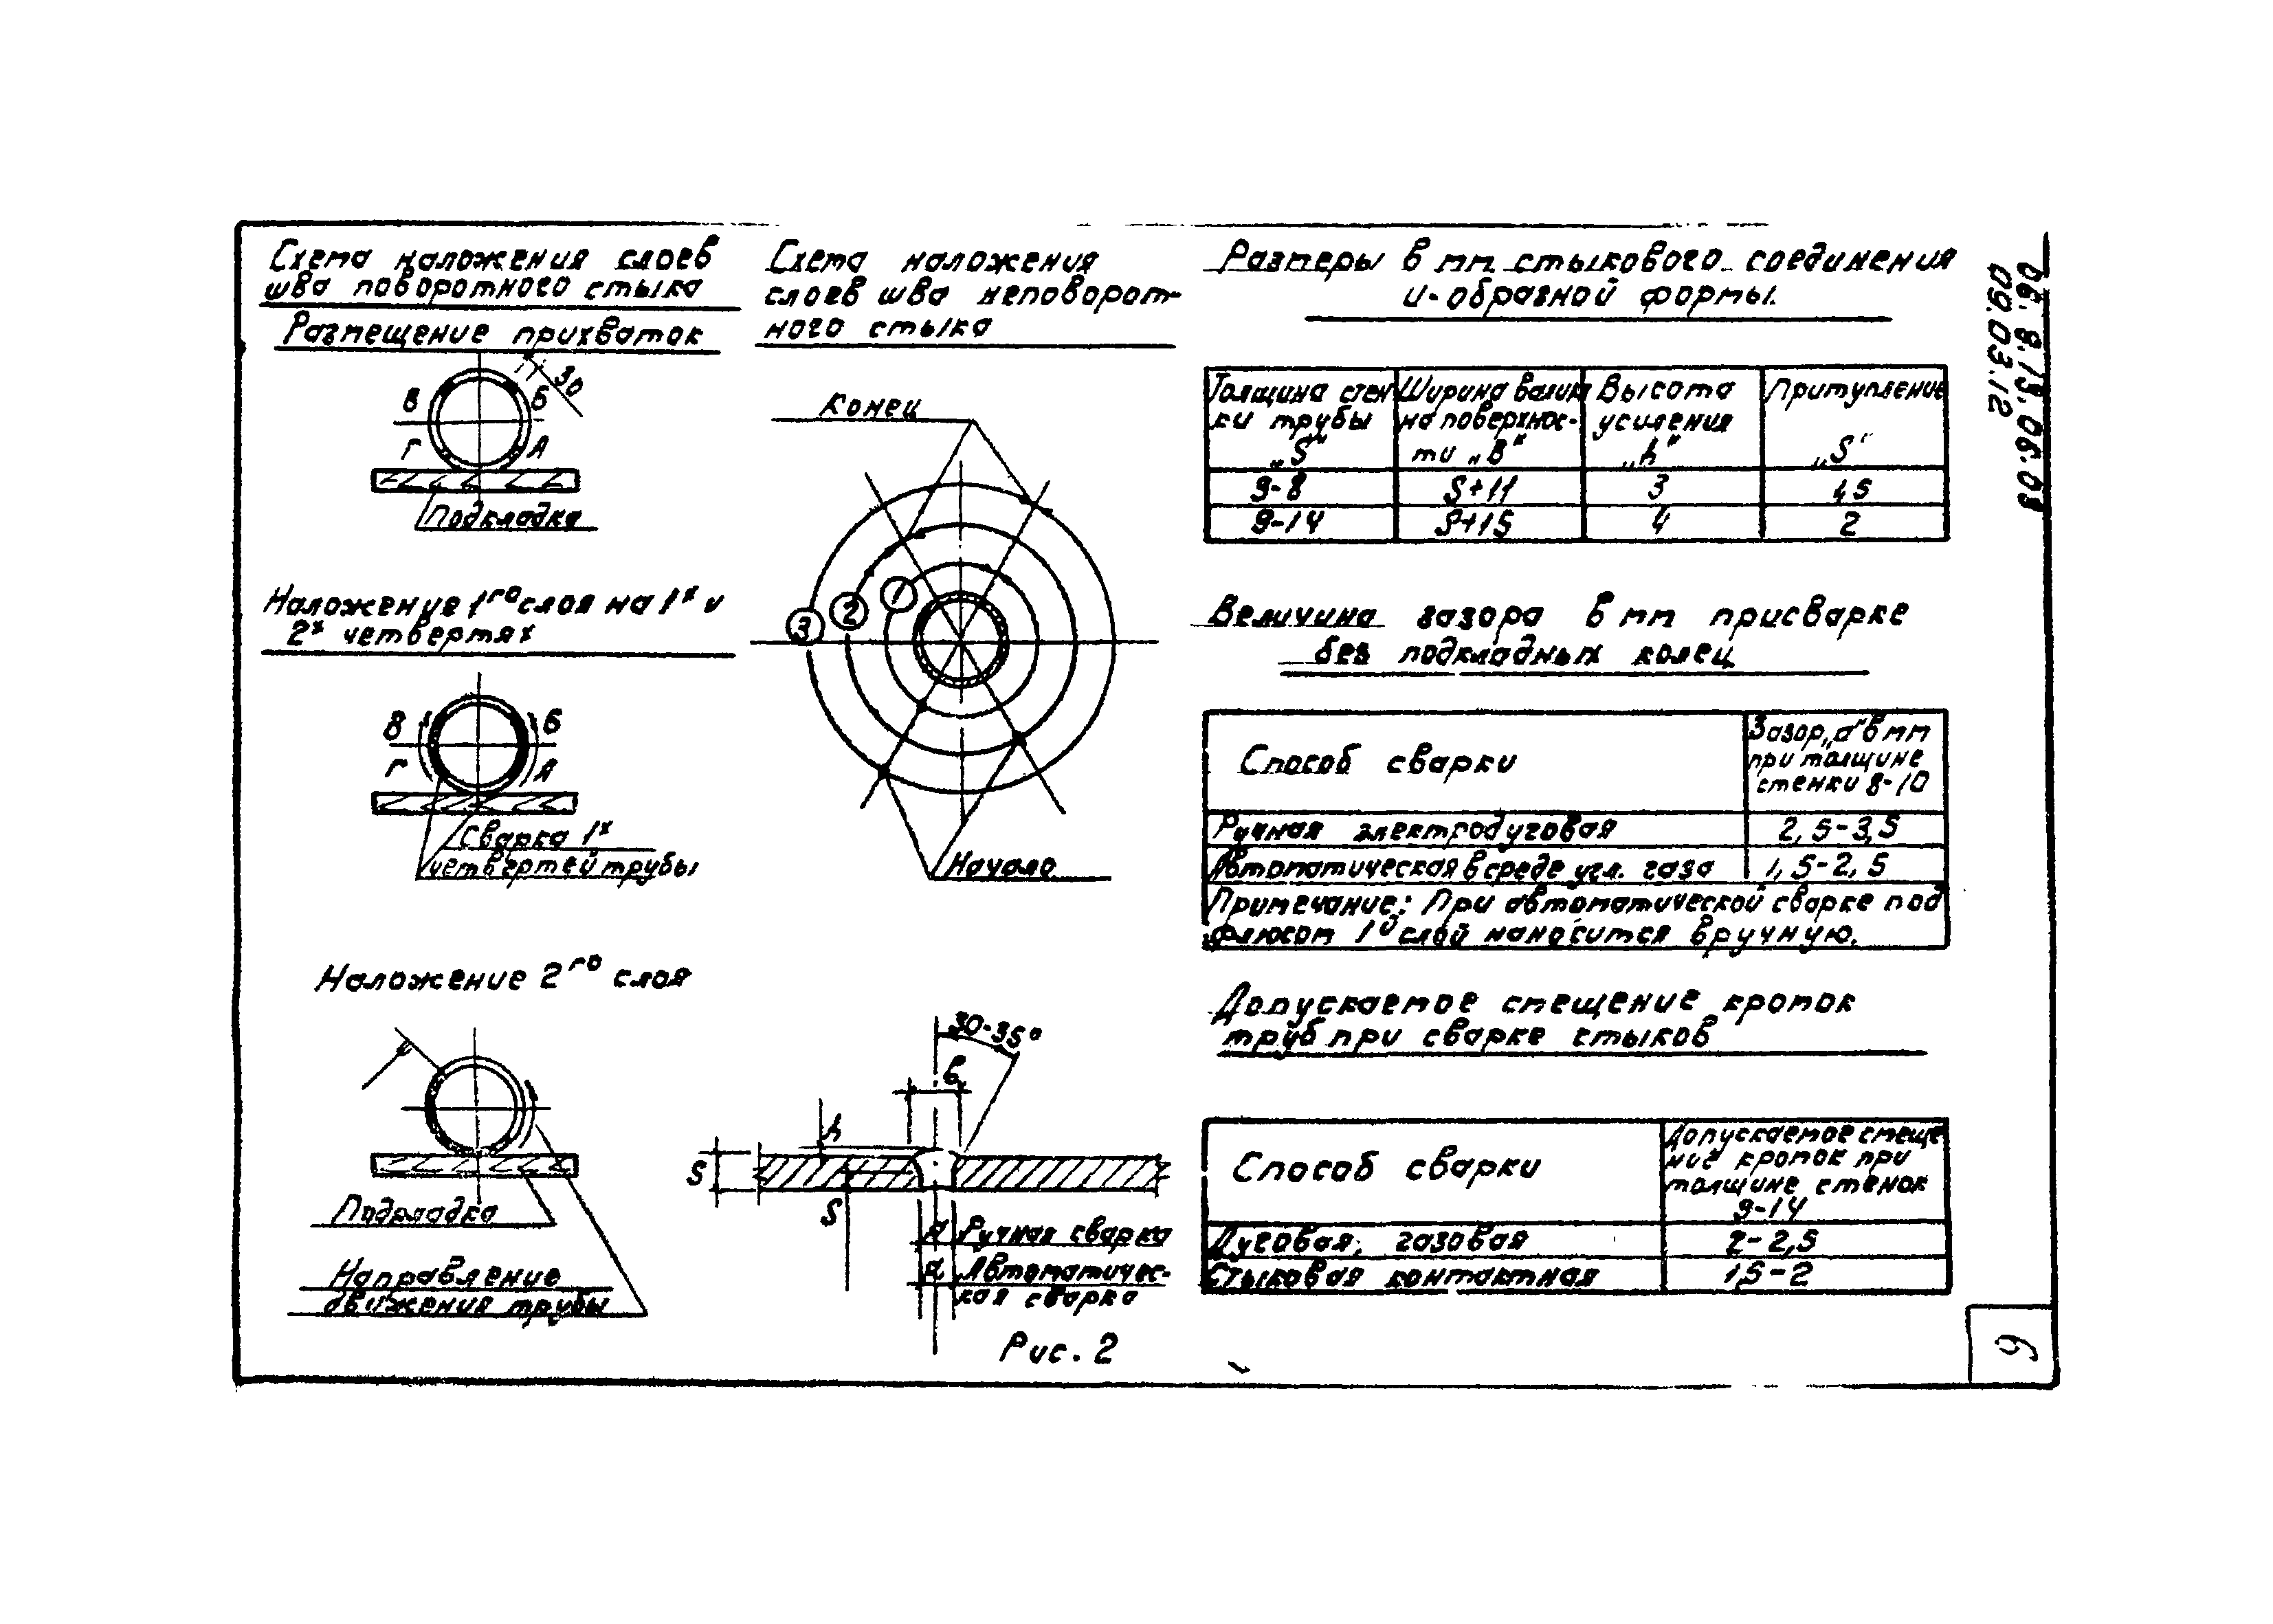 Схема наложения слоев
шва поворотного стыка
Размещение прихваток
30
В Б
Г А
Подкладка
Наложение 1го слоя на 1х и
2х четвертях
В Б
Г А
Сварка 1х
четвертей трубы
Наложение 2го слоя
Подкладка
Направление
движения трубы
Схема наложения
слоев шва неповорот-
ного стыка
Конец
1
2
3
Начало
30-35°
в
h
S
S
а Ручная сварка
а Автоматичес-
кая сварка
Рис. 2
Размеры в мм стыкового соединения
и-образной формы.
Толщина стен Ширина валик Высота Притупление
ки трубы на поверхнос- усиления
„S" ти „В" „h" „S"
9-8 S+11 3 1,5
9-14 S+15 4 2
Величина зазора в мм присварке
без подкладных колец
Способ сварки
Зазор „а" в мм
при толщине
стенки 8-10
Ручная электродуговая 2,5-3,5
Автоматическая в среде угл. газа 1,5-2,5
Примечание: При автоматической сварке под
флюсом 1й слой наносится вручную.
Допускаемое смещение кромок
труб при сварке стыков
Способ сварки
Допускаемое смеще
ние кромок при
толщине стенок
9-14
Дуговая, газовая 2-2,5
Стыковая контактная 1,5-2
06.8.13.06.03
09.03.12
9